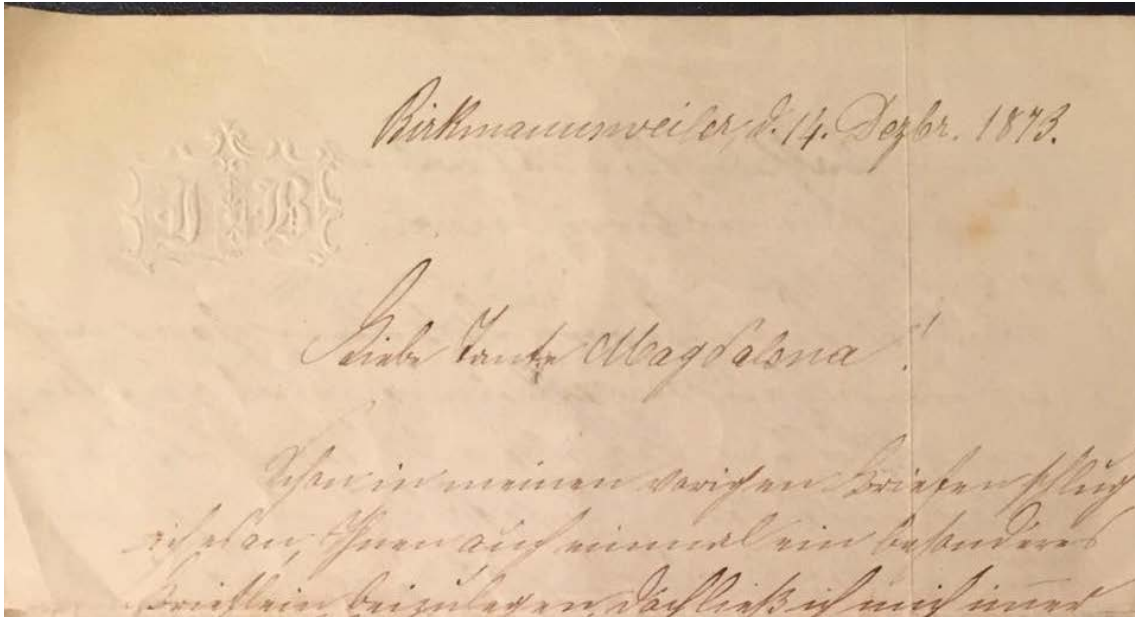 J B
Birkmannsweiler, d. 14. Dezbr. 1873.
Liebe Tante Magdalena!
Schon in meinen vorigen Briefen schlug
ich an, Ihnen auch einmal ein besonderes
Brieflein beizulegen, doch ließ ich mich immer